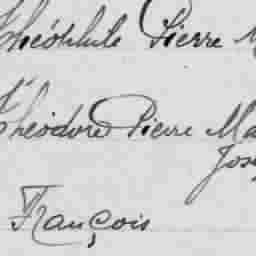 Théophile Pierre
Théodore Pierre Ma
Jos
François